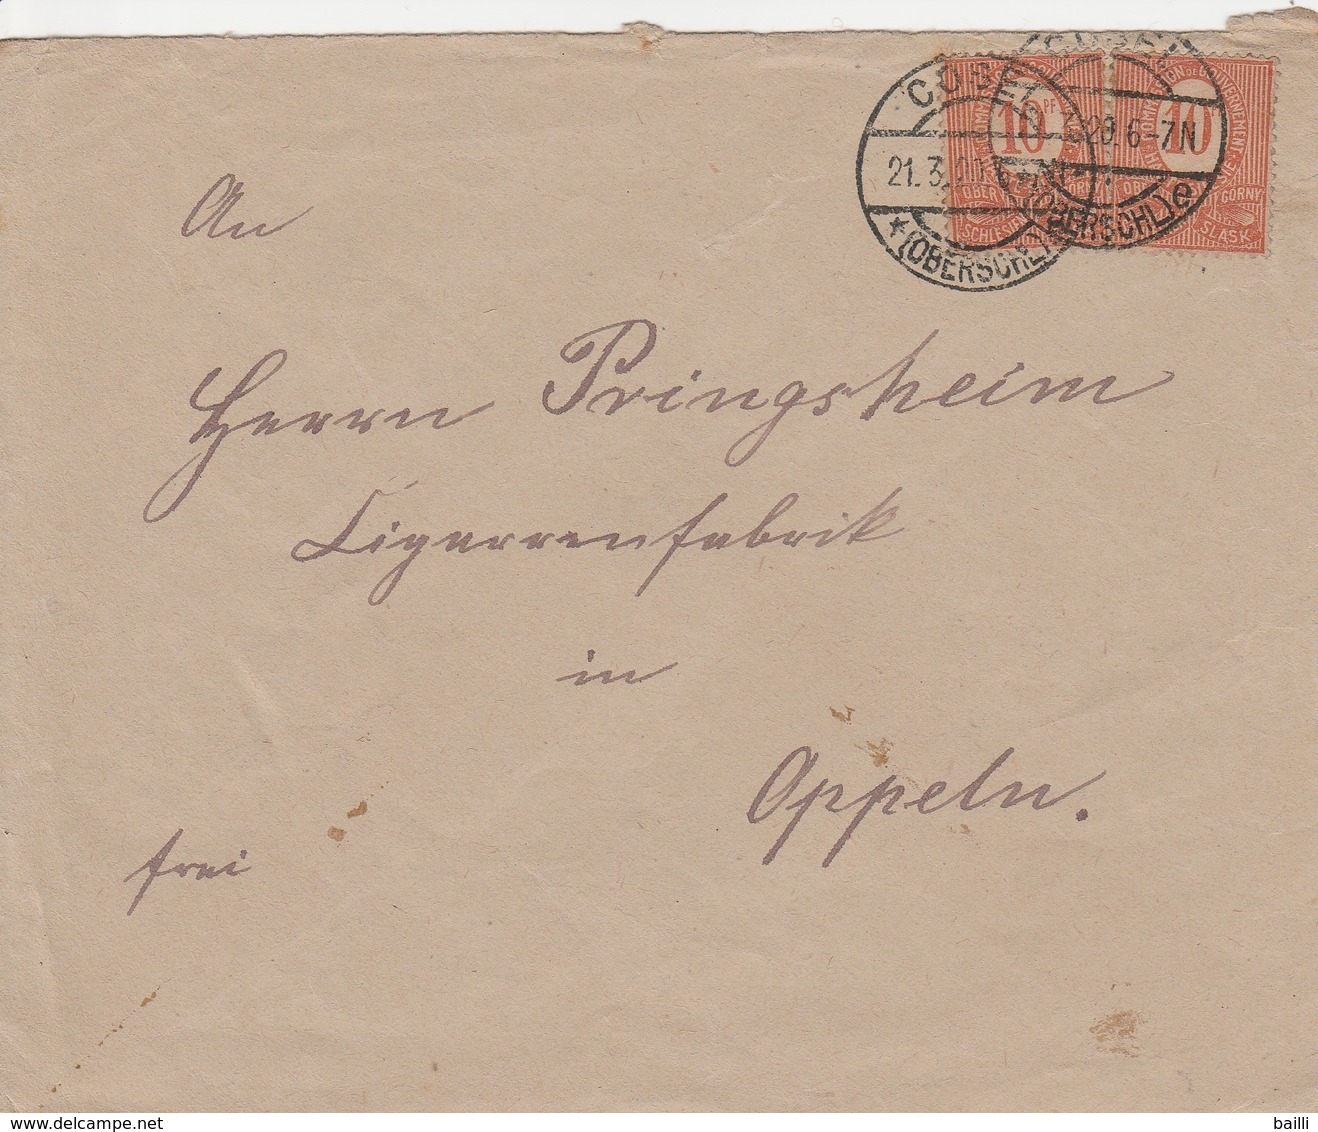 COSEL
21.3.20
★(OBERSCHL.)
20.6-7N
(OBERSCHL.)e
10 PF
COMMISSION DE GOUVERNEMENT
10
OBER
SCHLESIEN
GORNY
SLASK
An
Herrn Pringsheim
Cigarrenfabrik
in
Oppeln.
frei
www.delcampe.net
bailli